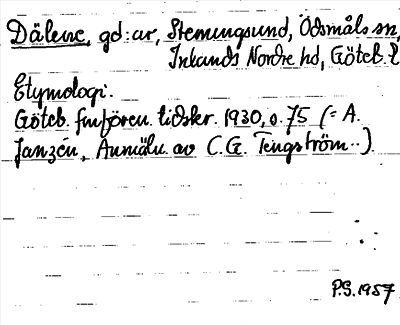 Dälene, gd:ar, Stenungsund, Ödsmåls sn,
Inlands Nordre hd, Göteb. l
Etymologi.
Göteb. fmfören. tidskr. 1930, s. 75 (= A.
Janzén, Anmäln. av C.G. Tengström..).
P.S. 1957